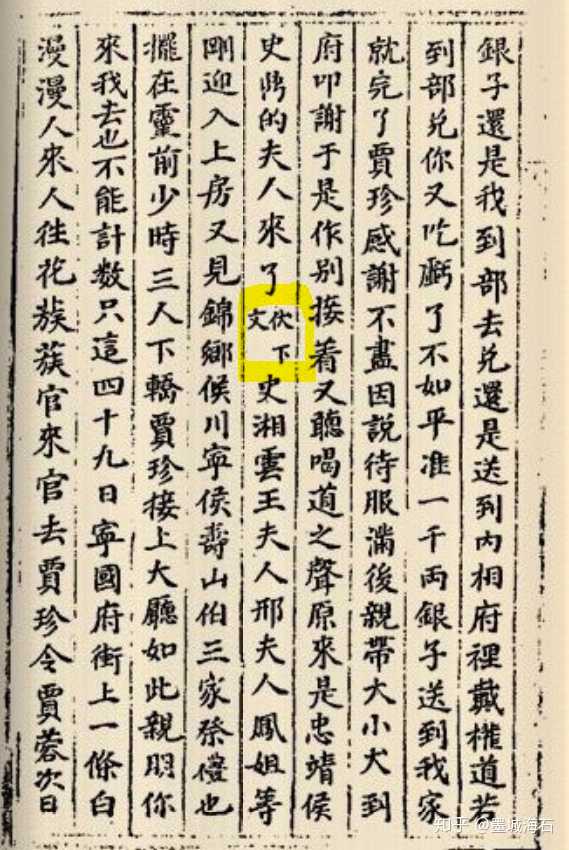 銀子還是我到部去兌還是送到內相府裡戴權道若
到部兌你又吃虧了不如平准一千両銀子送到我家
就完了賈珍感謝不盡因說待服滿後親帶大小犬到
府叩謝于是作別接着又聽喝道之聲原來是忠靖侯
史鼎的夫人來了伏下文史湘雲王夫人邢夫人鳳姐等
剛迎入上房又見錦鄉侯川寧侯壽山伯三家祭禮也
擺在靈前少時三人下轎賈珍接上大廳如此親朋你
來我去也不能計数只這四十九日寧國府街上一條白
漫漫人來人往花簇簇官來官去賈珍令賈蓉次日
知乎 @墨城海石